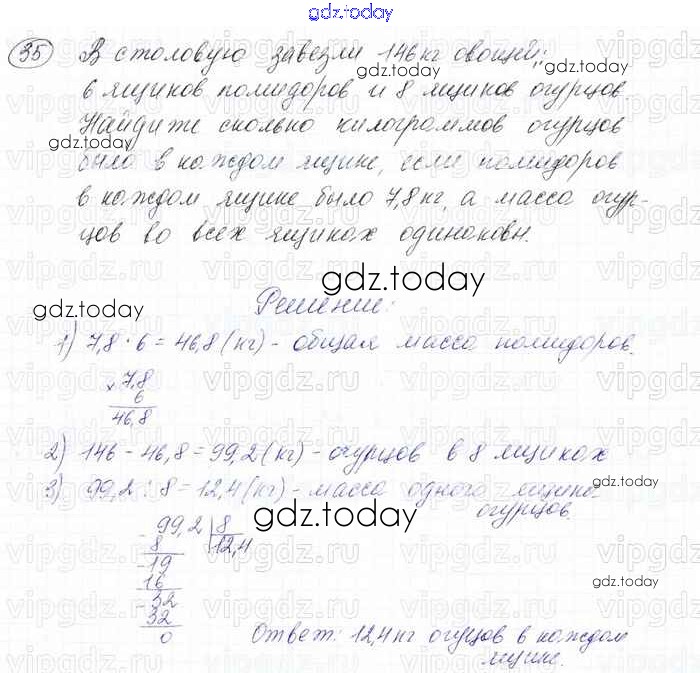 gdz.today
35 В столовую завезли 146 кг овощей:
gdz.today
gdz.today
6 ящиков помидоров и 8 ящиков огурцов.
Найдите сколько килограммов огурцов
gdz.today
было в каждом ящике, если помидоров
gdz.today
в каждом ящике было 7,8 кг, а масса огур-
цов во всех ящиках одинаковы.
gdz.today
gdz.today
Решение:
1) 7,8 · 6 = 46,8 (кг) - общая масса помидоров.
× 7,8
6
46,8
2) 146 - 46,8 = 99,2 (кг) - огурцов в 8 ящиках
3) 99,2 : 8 = 12,4 (кг) - масса одного ящика
gdz.today
огурцов.
gdz.today
- 99,2 | 8
8 12,4
- 19
16
gdz.today
- 32
32
0
Ответ: 12,4 кг огуцов в каждом
ящике.
vipgdz.ru